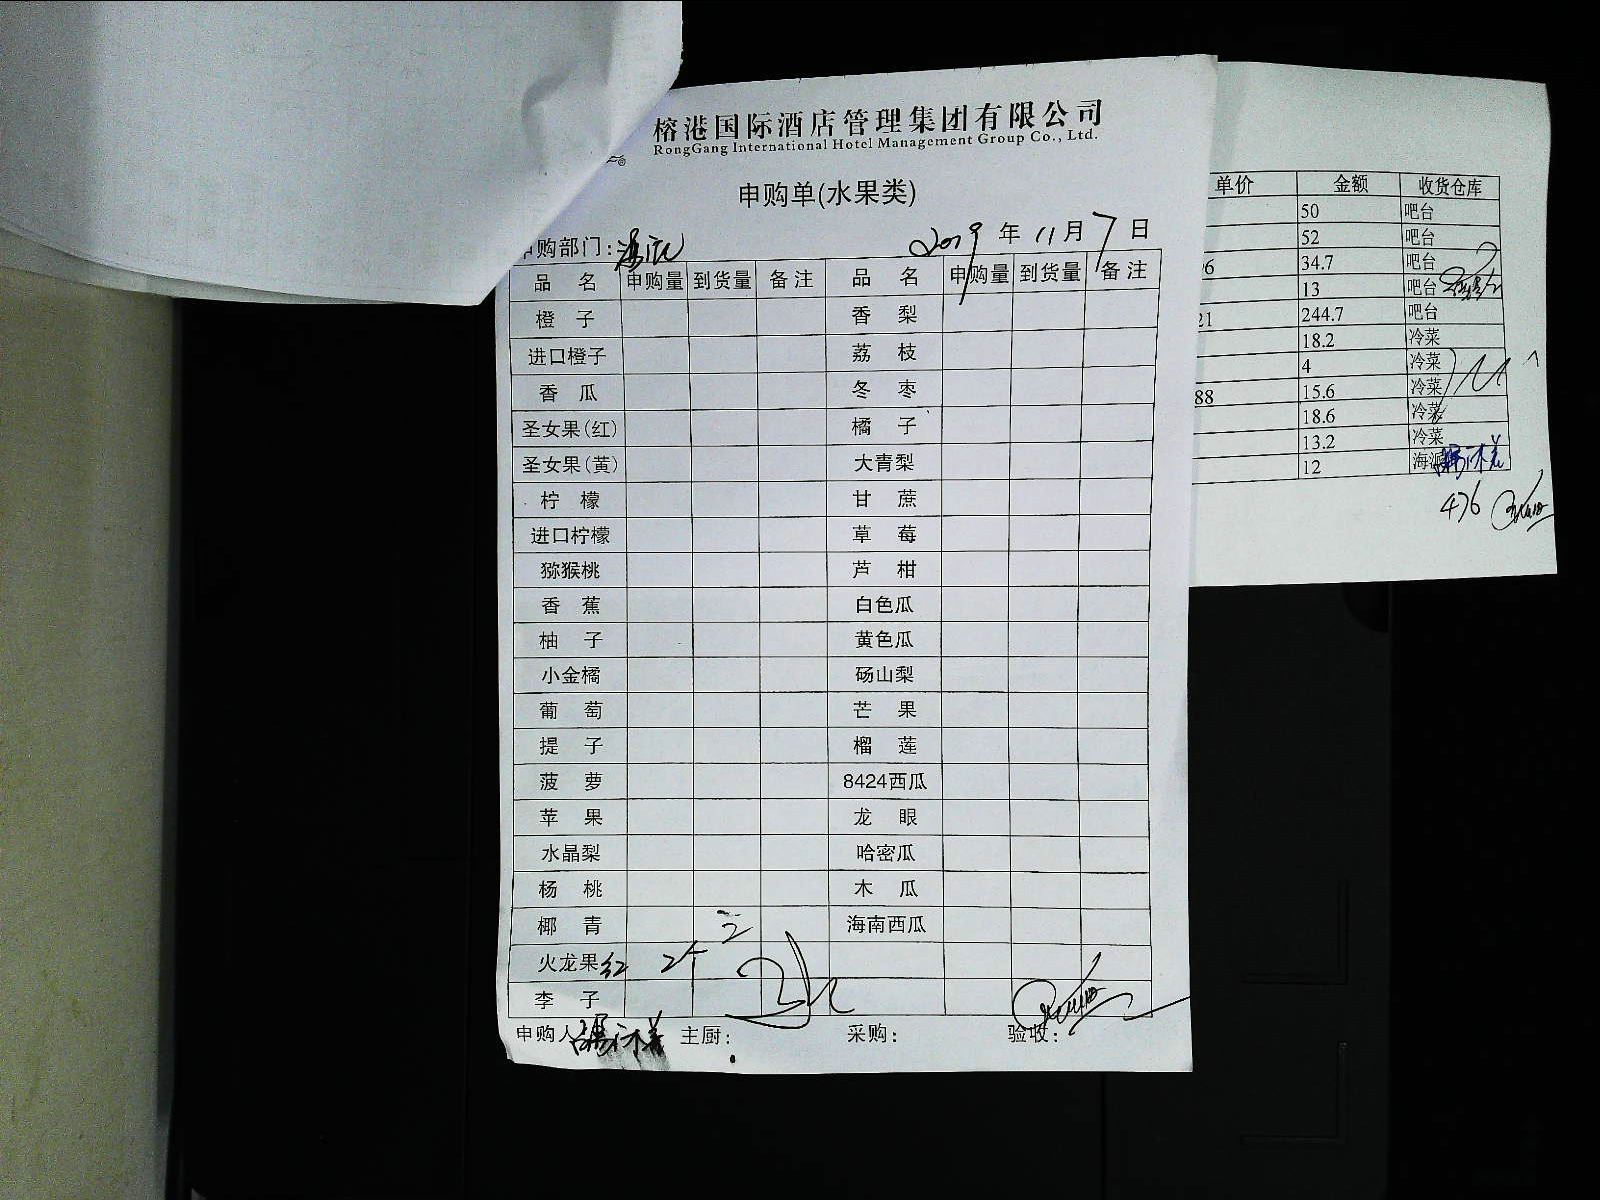 榕港国际酒店管理集团有限公司
RongGang International Hotel Management Group Co., Ltd.
申购单(水果类)
申购部门: 2019 年 11 月 7 日
品 名 申购量 到货量 备注 品 名 申购量 到货量 备注
橙 子 香 梨
进口橙子 荔 枝
香 瓜 冬 枣
圣女果(红) 橘 子
圣女果(黄) 大青梨
柠 檬 甘 蔗
进口柠檬 草 莓
猕猴桃 芦 柑
香 蕉 白色瓜
柚 子 黄色瓜
小金橘 砀山梨
葡 萄 芒 果
提 子 榴 莲
菠 萝 8424西瓜
苹 果 龙 眼
水晶梨 哈密瓜
杨 桃 木 瓜
椰 青 海南西瓜
火龙果红 2个 2
李 子
申购人 主厨: 采购: 验收:
单价 金额 收货仓库
50 吧台
52 吧台
6 34.7 吧台
13 吧台
21 244.7 吧台
18.2 冷菜
4 冷菜
88 15.6 冷菜
18.6 冷菜
13.2 冷菜
12 海派
476